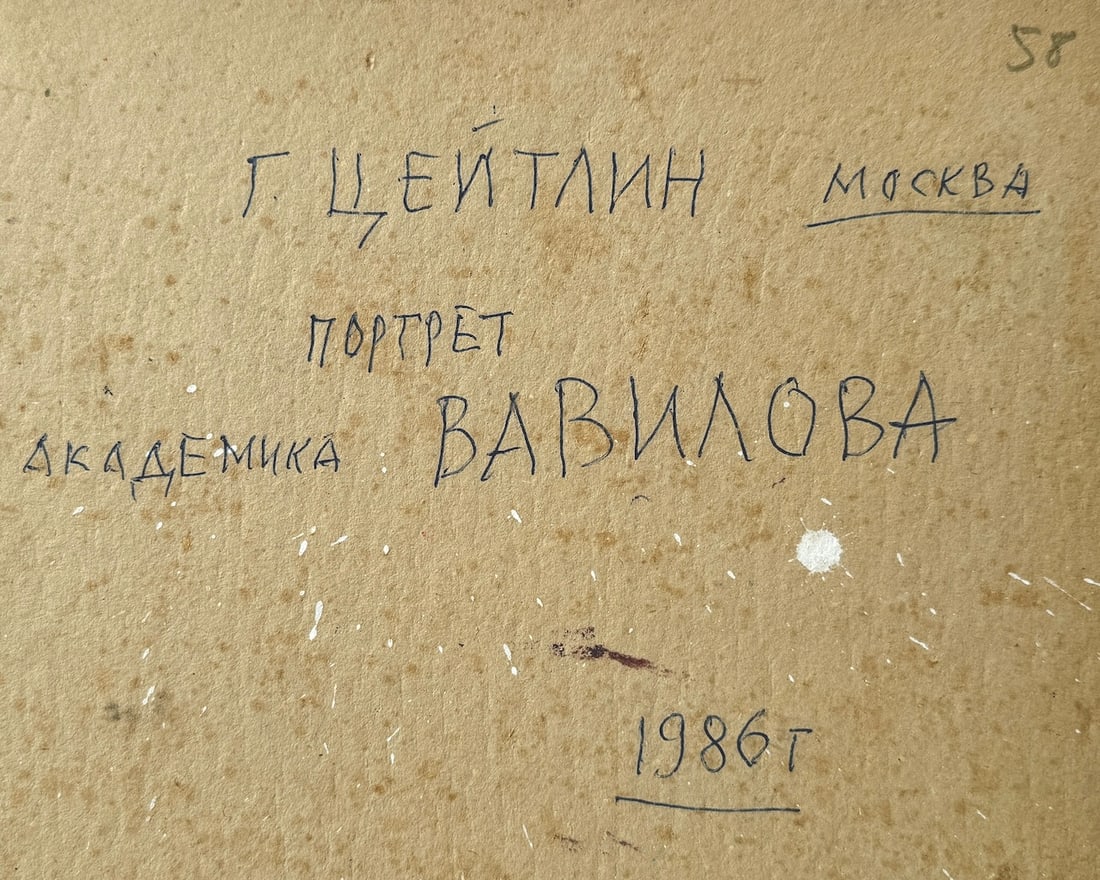 58
Г. ЦЕЙТЛИН МОСКВА
ПОРТРЕТ
АКАДЕМИКА ВАВИЛОВА
1986 г